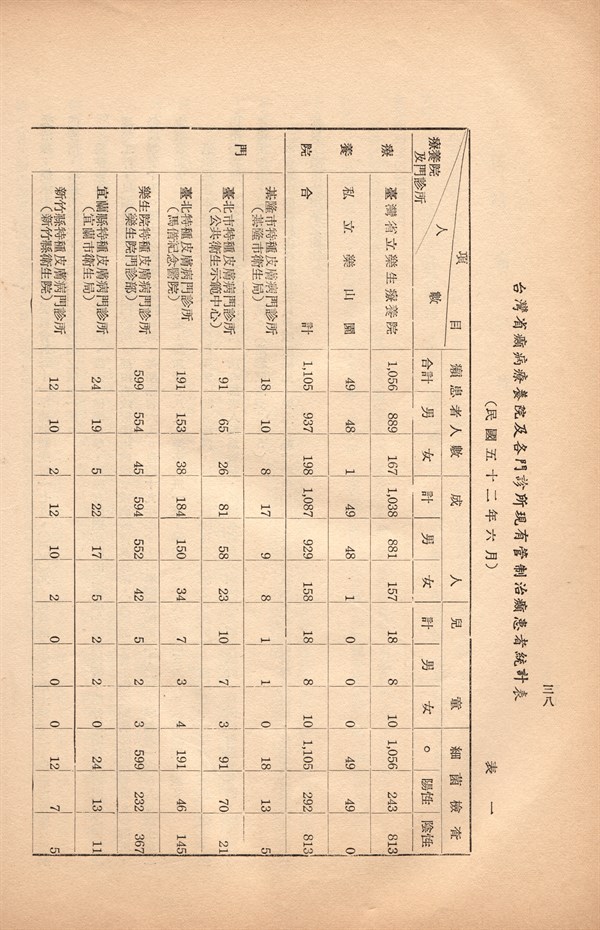 三八
台灣省癩病療養院及各門診所現有管制治癩患者統計表 表一
(民國五十二年六月)
項目
人數
療養院及門診所
癩患者人數 成人 兒童 細菌檢查
合計 男 女 計 男 女 計 男 女 。 陽性 陰性
療養院
臺灣省立樂生療養院 1,056 889 167 1,038 881 157 18 8 10 1,056 243 813
私立樂山園 49 48 1 49 48 1 0 0 0 49 49 0
合計 1,105 937 198 1,087 929 158 18 8 10 1,105 292 813
門
基隆市特種皮膚病門診所(基隆市衛生局) 18 10 8 17 9 8 1 1 0 18 13 5
臺北市特種皮膚病門診所(公共衛生示範中心) 91 65 26 81 58 23 10 7 3 91 70 21
臺北特種皮膚病門診所(馬偕記念醫院) 191 153 38 184 150 34 7 3 4 191 46 145
樂生院特種皮膚病門診所(樂生院門診部) 599 554 45 594 552 42 5 2 3 599 232 367
宜蘭縣特種皮膚病門診所(宜蘭市衛生局) 24 19 5 22 17 5 2 2 0 24 13 11
新竹縣特種皮膚病門診所(新竹縣衛生院) 12 10 2 12 10 2 0 0 0 12 7 5